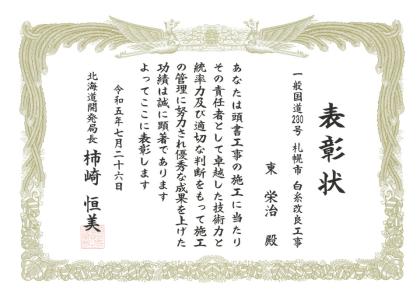 表彰状
一般国道230号 札幌市 白糸改良工事
東 栄治 殿
あなたは頭書工事の施工に当たり
その責任者として卓越した技術力と
統率力及び適切な判断をもって施工
の管理に努力され優秀な成果を上げた
功績は誠に顕著であります
よってここに表彰します
令和五年七月二十六日
北海道開発局長 柿崎 恒美